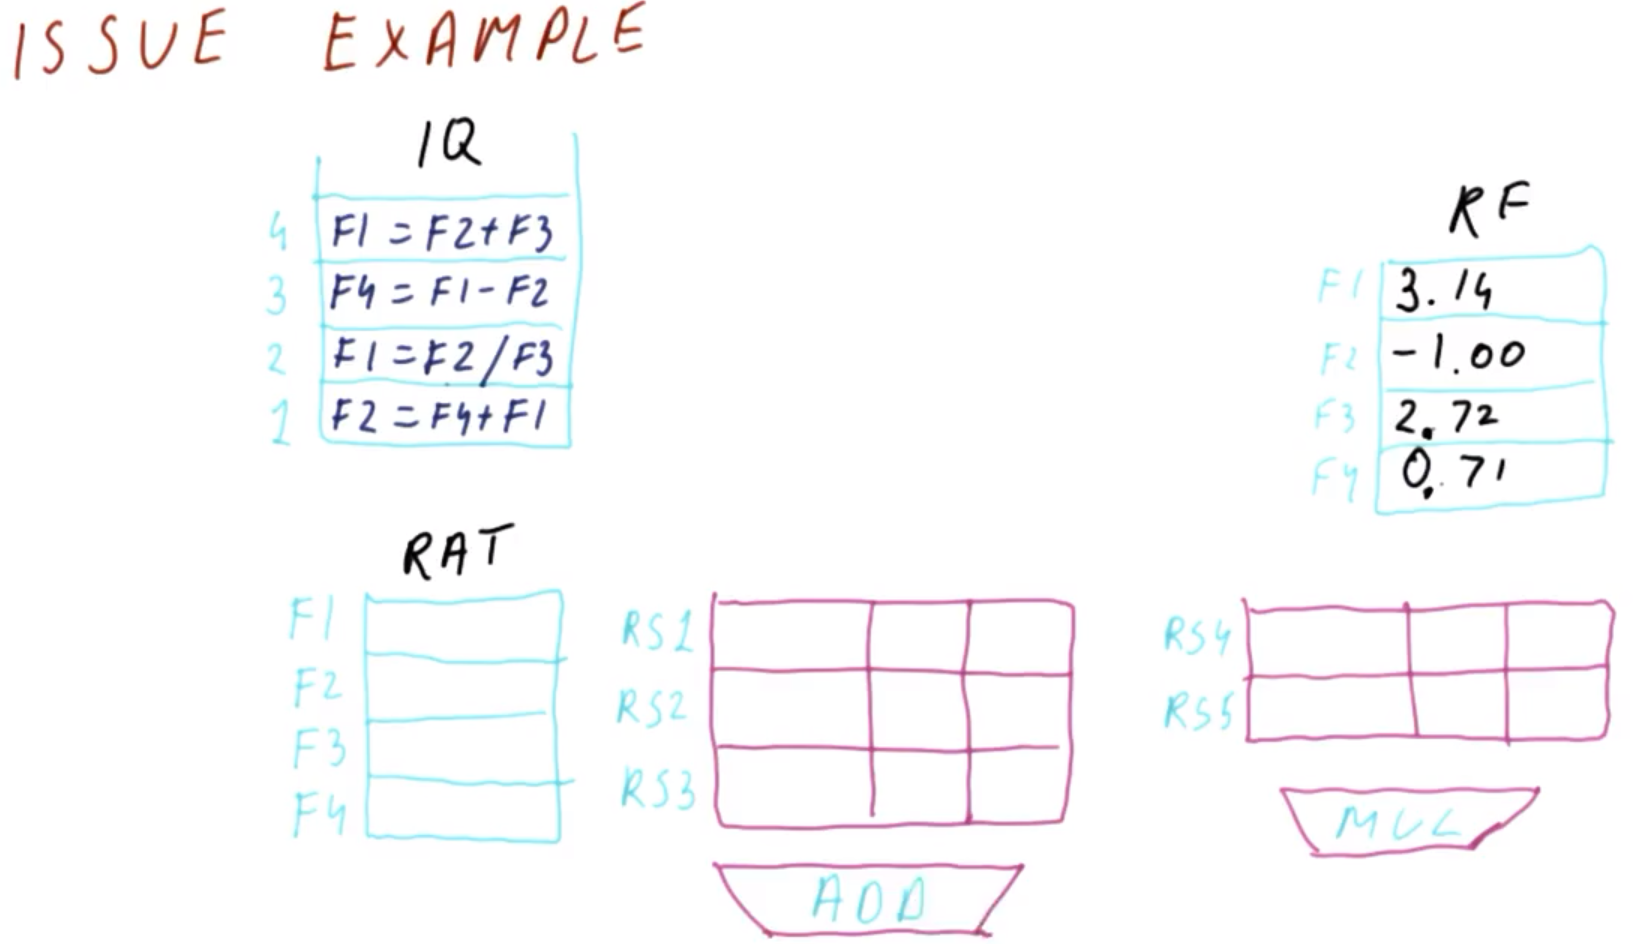 ISSUE EXAMPLE
IQ
4 F1 = F2+F3
3 F4 = F1-F2
2 F1 = F2/F3
1 F2 = F4+F1
RF
F1 3.14
F2 -1.00
F3 2.72
F4 0.71
RAT
F1
F2
F3
F4
RS1
RS2
RS3
ADD
RS4
RS5
MUL